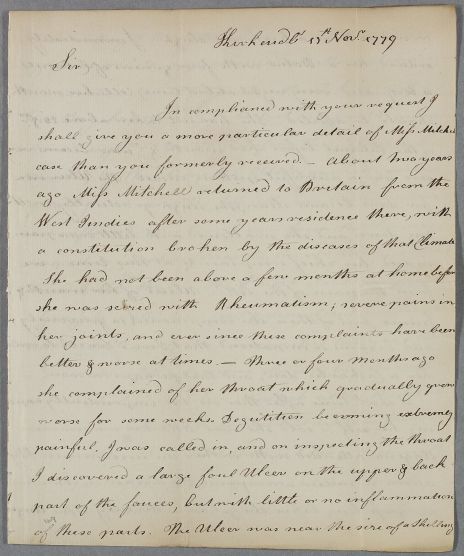 Kirkcudbt. 15th Novr. 1779
Sir
In compliance with your request I
shall give you a more particular detail of Miss Mitchel
case than you formerly received. — About two years
ago Miss Mitchell returned to Britain from the
West Indies after some years residence there, with
a constitution broken by the diseases of that Climate
She had not been above a few months at home before
she was seized with Rheumatism; severe pains in
her joints, and ever since these complaints have been
better & worse at times. — Three or four Months ago
she complained of her throat which gradually grew
worse for some weeks. Degutition becoming extremely
painful, I was called in, and on inspecting the throat
I discovered a large foul Ulcer on the upper & back
part of the fauces, but with little or no inflammation
of these parts. The Ulcer was near the size of a Shilling